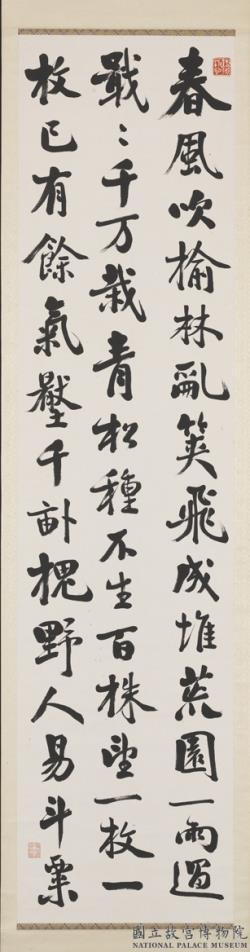 春風吹榆林亂莢飛成堆荒園一雨過
戢〻千万栽青松種不生百株望一枚一
枚已有餘氣壓千畝槐野人易斗粟
國立故宮博物院
NATIONAL PALACE MUSEUM